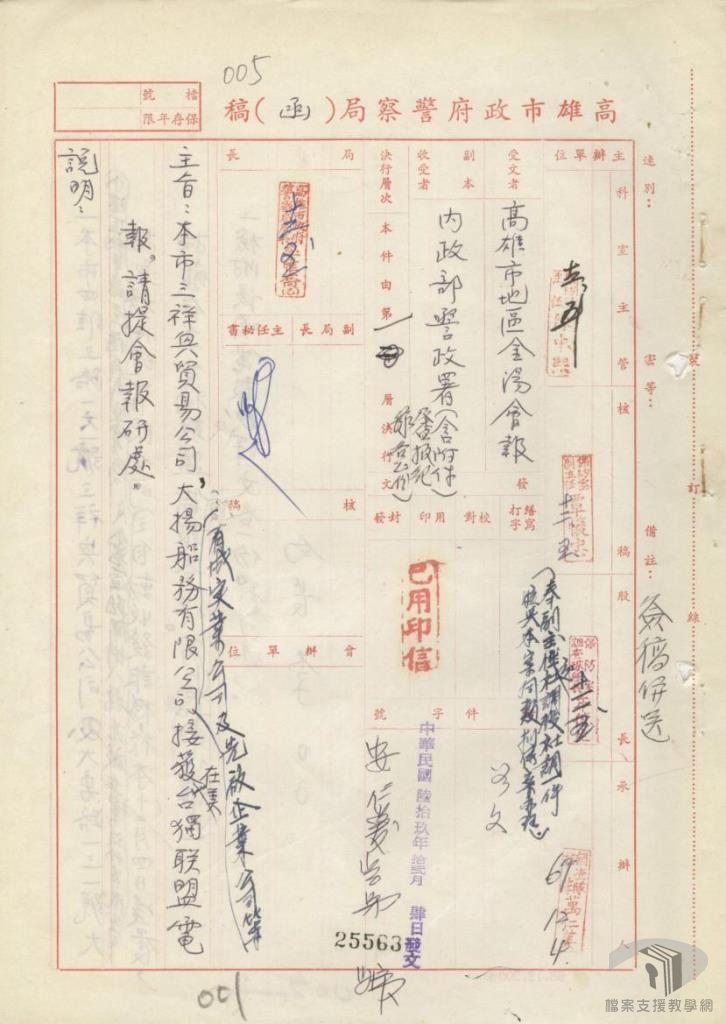 005
檔號
保存年限
高雄市政府警察局(函)稿
速別：
密等：
備註：
簽稿併送
裝
訂
線
主辦單位
科室主管
核稿
股長
承辦人
67.12.4.
受文者
高雄市地區金湯會報
副本
收受者
內政部警政署(含附件)
決行層次
本件由第一層決行
發文
繕寫
打字
校對
用印
封發
已用印信
字號
件
中華民國陸拾玖年拾貳月肆日發文
安仁義
字
25563
號
局長
副局長
主任秘書
核稿
會辦單位
主旨：本市三祥興貿易公司、大揚船務有限公司、
有成實業公司及先啟企業公司等
接獲在美台獨聯盟電
報。請提會報研處。
說明：
001
檔案支援教學網